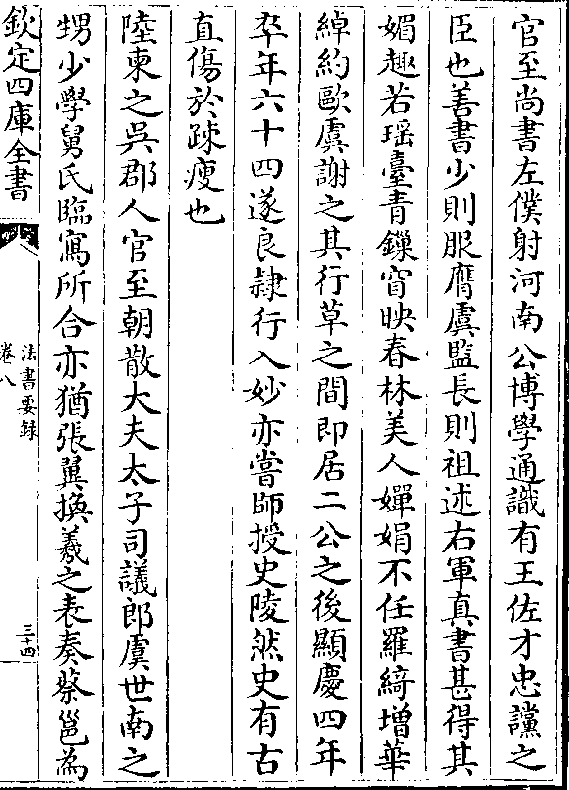 官至尚書左僕射河南公博學通識有王佐才忠讜之
臣也善書少則服膺虞監長則祖述右軍真書甚得其
媚趣若瑶臺青鏁窅映春林美人嬋娟不任羅綺增華
綽約歐虞謝之其行草之間即居二公之後顯慶四年
卒年六十四遂良隷行入妙亦嘗師授史陵然史有古
直傷於踈瘦也
陸柬之吳郡人官至朝散大夫太子司議郎虞世南之
甥少學舅氏臨寫所合亦猶張翼換羲之表奏蔡邕為
欽定四庫全書
法書要録
卷八
三十四